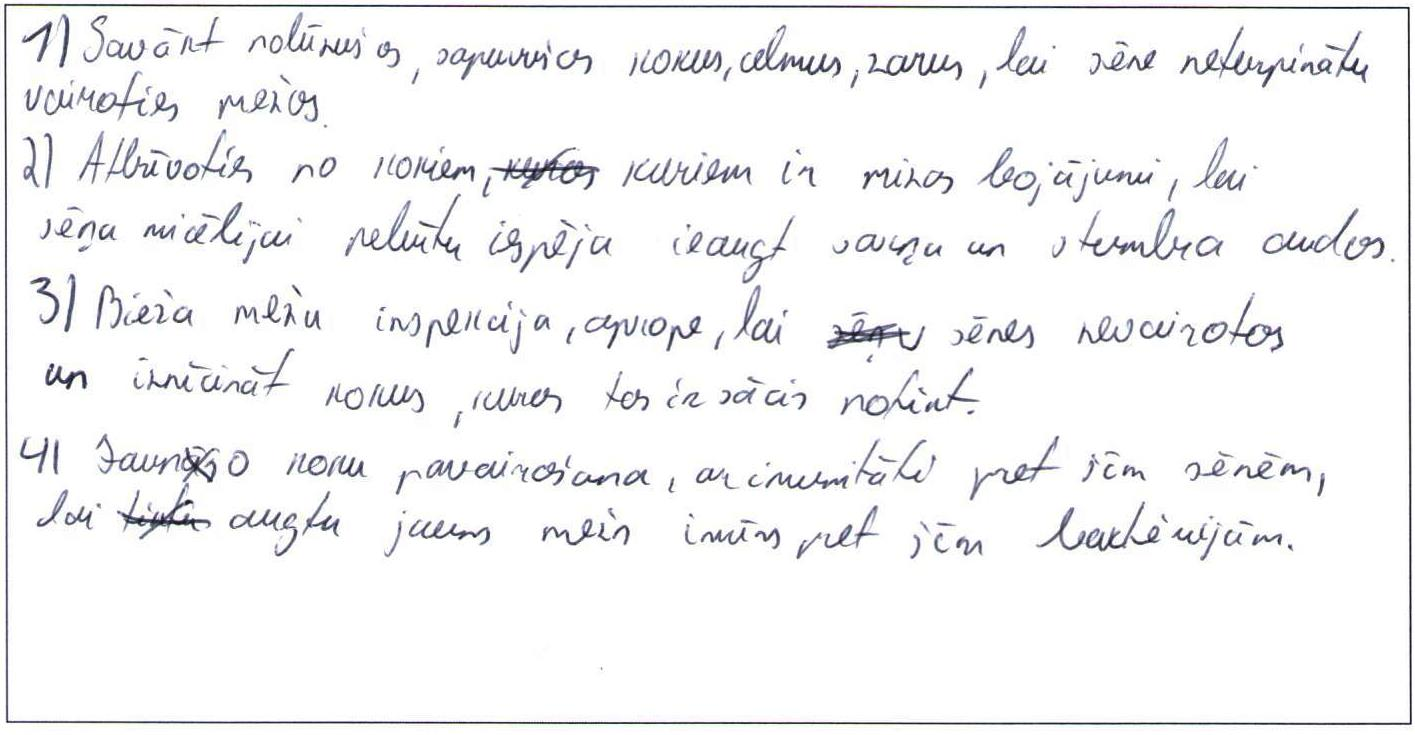 1) Savākt nolūzušos, sapuvušos kokus, celmus, zarus, lai sēne neturpinātu
vairoties mežos.
2) Atbrīvoties no kokiem, kuriem ir mizas bojājumi, lai
sēņu micēlijai nebūtu iespēja ieaugt sakņu un stumbra audos.
3) Bieža mežu inspekcija, apkope, lai sēnes nevairotos
un iznīcināt kokus, kuros tas ir sācis notikt.
4) Jauno koku pavairošana, ar imunitāti pret šīm sēnēm,
lai augtu jauns mežs imūns pret šīm baktērijām.